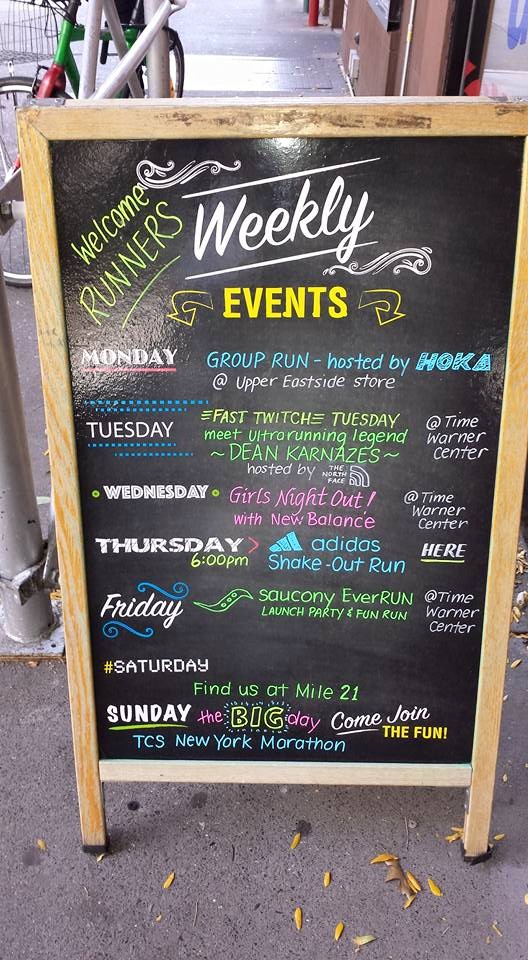 Welcome
RUNNERS
Weekly
EVENTS
MONDAY GROUP RUN - hosted by HOKA
@ Upper Eastside store
TUESDAY FAST TWITCH TUESDAY @ Time
meet ultrarunning legend Warner
~ DEAN KARNAZES ~ Center
hosted by THE NORTH FACE
WEDNESDAY Girls Night Out! @ Time
with New Balance Warner
Center
THURSDAY > adidas HERE
6:00pm Shake-Out Run
Friday saucony EverRUN @Time
LAUNCH PARTY & FUN RUN Warner
Center
#SATURDAY
Find us at Mile 21
SUNDAY the BIG day Come Join
THE FUN!
TCS New York Marathon